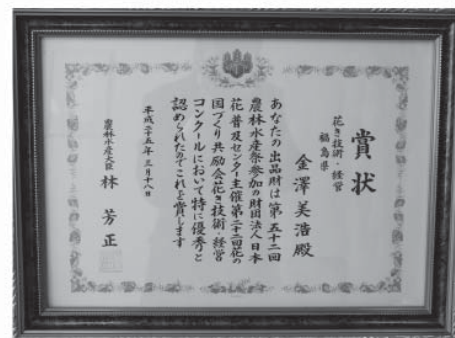 賞状
花き技術・経営
福島県
金澤美浩殿
あなたの出品財は第五十二回
農林水産祭参加の財団法人日本
花普及センター主催第二十二回花の
国づくり共励会花き技術・経営
コンクールにおいて特に優秀と
認められたのでこれを賞します
平成二十五年三月十八日
農林水産大臣 林芳正